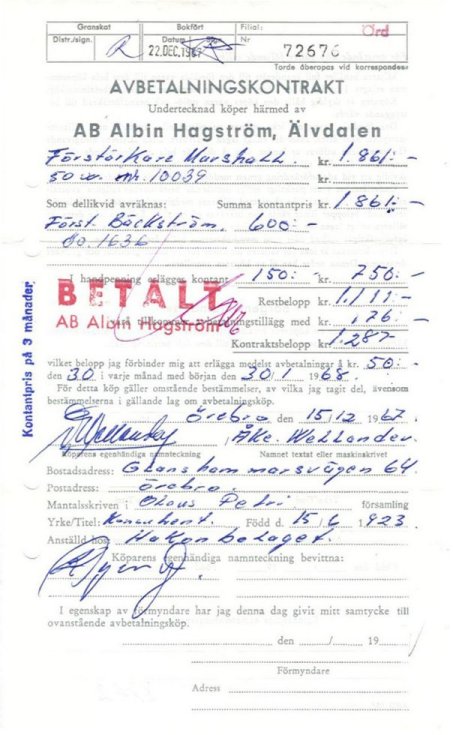 Granskat Bokfört Filial: Örd
Distr./sign. Datum Nr
22.DEC.1967 72676
Torde åberopas vid korrespondens
AVBETALNINGSKONTRAKT
Undertecknad köper härmed av
AB Albin Hagström, Älvdalen
Förstärkare Marshall kr. 1.861:-
50 w. nr. 10039 kr.
Som dellikvid avräknas: Summa kontantpris kr. 1861:-
Först. Bäckström. 600:-
Go. 1636
I handpenning erlägges kontant 150:- 750:-
BETALT
Restbelopp kr. 1.111:-
AB Albin Hagström
kr.
Kontraktsbelopp kr. 1.287-
vilket belopp jag förbinder mig att erlägga medelst avbetalningar å kr. 50:-
den 30 i varje månad med början den 30/1 1968.
För detta köp gäller omstående bestämmelser, av vilka jag tagit del, ävensom
bestämmelserna i gällande lag om avbetalningsköp.
Örebro den 15/12 1967.
Åke Wellander.
Köparens egenhändiga namnteckning Namnet textat eller maskinskrivet
Bostadsadress: Glanshammarsvägen 64
Postadress: Örebro.
Mantalsskriven i Olaus Petri församling
Yrke/Titel: Född d. 15/6 1923.
Anställd hos:
Köparens egenhändiga namnteckning bevittna:
I egenskap av förmyndare har jag denna dag givit mitt samtycke till
ovanstående avbetalningsköp.
den / 19
Förmyndare
Adress
Kontantpris på 3 månader,